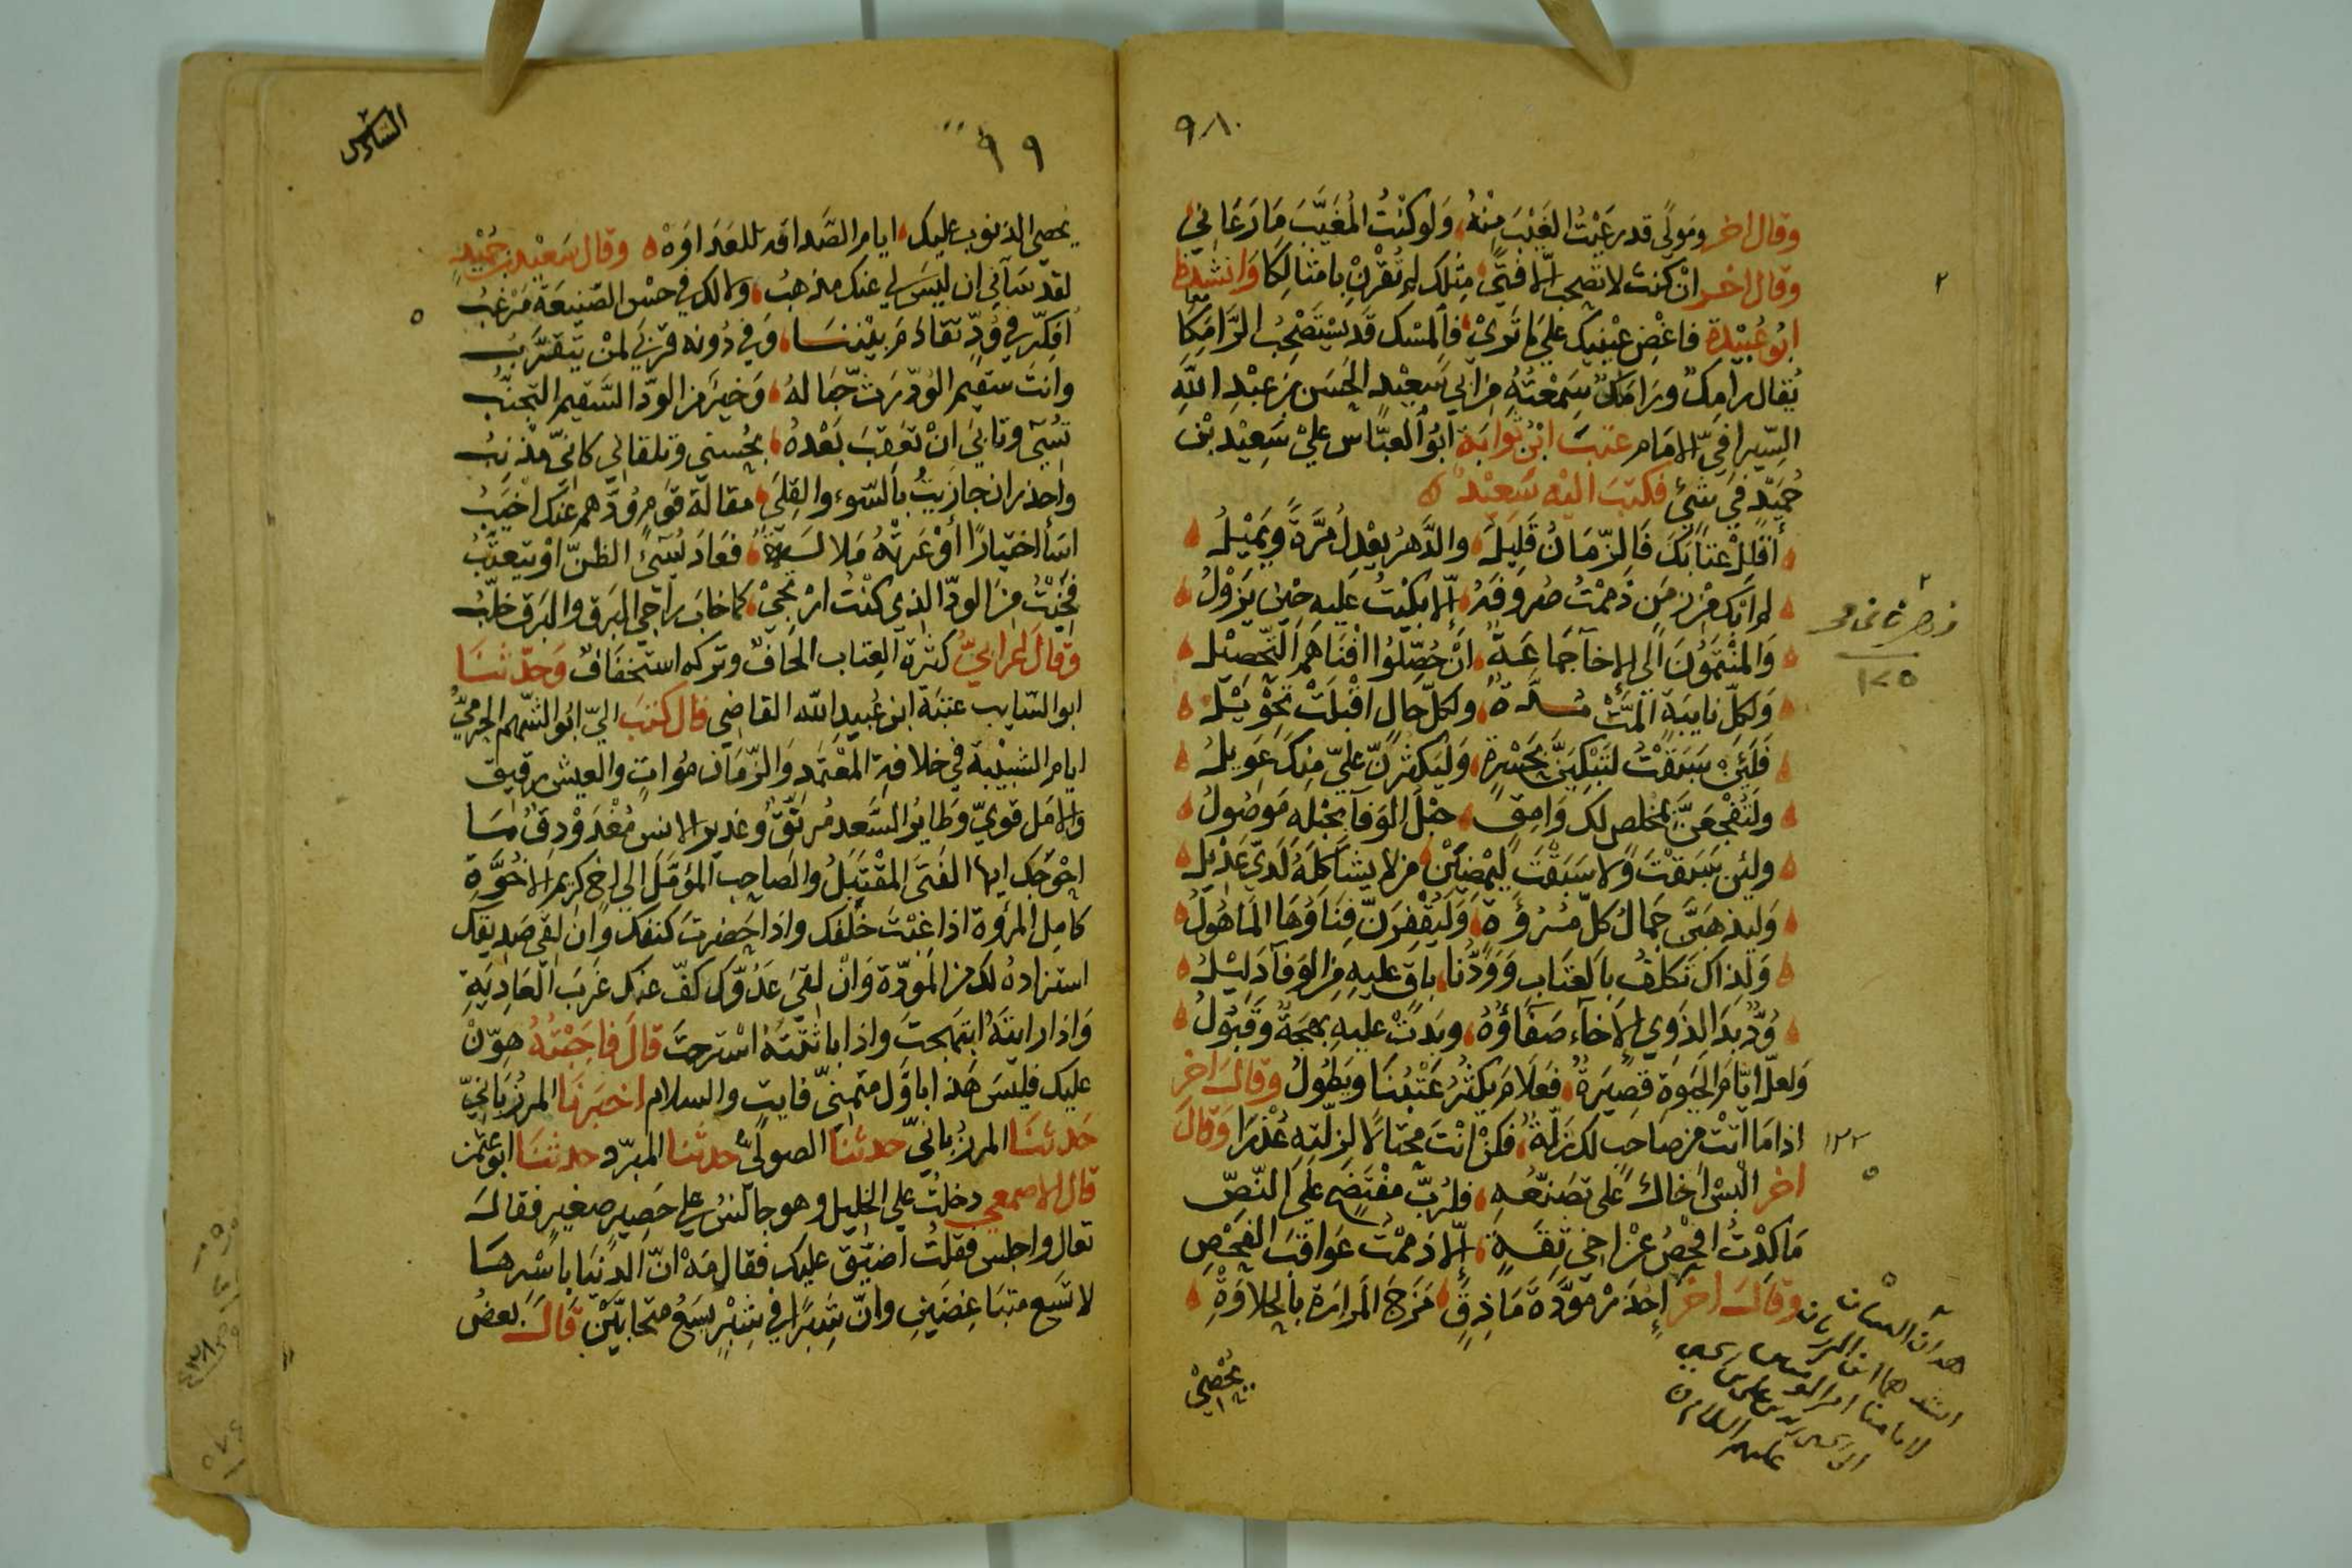 ٩٨
وقال اخر ومولًى قد رعيتُ الغَيْبَ مِنْهُ، وَلو كنْتُ المُغَيَّبَ مَا رَعَاني
وقال اخر ان كنتَ لا تصحب الّا فتىً، مِثلَك لم تُقْرنْ بامثالِكا وَانشدنا
ابُو عُبيْدة فاغْضِ عيْنيك علي ما تَرىْ، فالمسْك قد يسْتَصْحِبُ الرَّامِكَا
يُقال رامِك ورَامَك سمعْتهُ من ابي سَعِيْد الحَسَن بن عبْدِ اللهِ
السِّيرافيّ الامَام عتبَ ابْن ثوابَة ابُو العبَّاس عليْ سَعِيْد بْن
حُمَيْد في شيْ فكتبَ اليْه سَعِيْد
أقلِلْ عتابَكَ فَالزّمَانُ قَلِيلُ، والدَّهرُ يعْدِلُ مَرَّةً وَيَمِيْلُ
لم ابْكِ مْن زمَنٍ ذَممْتُ صُروفَهُ، إلّا بكيْتُ عليهِ حيْن يزُولُ
وَالمنْتمُوْنَ الَى الاخآ جمَاعَةٌ، انْ حُصِّلُوا افْنَاهُم التَّحصِيْلُ
وَلكلّ نايبَةٍ ألمَّتْ مُدَّة، ولكلّ حالٍ اقْبلَتْ تحْوِيْلُ
فَلَئِن سَبَقْتُ لتَبْكِيَنَّ بحَسْرةٍ، وَليَكثُرَنّ عليّ منِكَ عَوِيلُ
ولَتُفْجَعَنَّ بمُخلصٍ لك وَامِقٍ، حبْلُ الوَفآ بحَبْلهِ مَوصُولُ
ولئِن سَبقْتَ وَلا سَبَقْتَ ليَمْضِيَنْ، من لا يشاكلهُ لَديّ عَدِيلُ
وَليذهبَنَّ جَمالُ كلّ مُرُوَّةٍ، وَلَيُقْفِرَنّ فِنَاؤُهَا المَاهُولُ
وَلِذاك تَكلَفُ بالعتَابِ وَوُدُّنا، باقٍ عليهِ مِن الوَفآ دَلِيْلُ
وُدٌّ بدَا لذَوِي الإخآء صَفآؤُهُ، وبَدَتْ عليهِ بهجةٌ وَقَبُولُ
وَلعلّ ايّامَ الحيَوةِ قصِيرَةٌ، فعَلامَ يكثُرُ عَتْبُنَا ويَطُولُ وقالَ اخر
اذا مَا اتتْ من صَاحبٍ لك زَلّة، فكنْ انْتَ محتالًا لزلّتهِ عُذْرَا وَقالَ
اخر البسْ اخاكَ على تصَنّعهِ، فلرُبّ مفْتضَحٍ علَي النّصّ
مَا كدْتُ افْحصُ عنْ اخي ثِقَةٍ، إلّا ذَممْتُ عَواقبَ الفَحْصِ
وقالَ اخر إحْذَر مَوَدَّة مَاذِقٍ، مَزَجَ المَرارَة بالحلاوَةِ
يُحصِيْ
١٢٢
١٢٥
٩٩
السّادس
يُحصِي الذنوب عليك، ايام الصَّداقة للعَداوَهْ وقال سَعيْد بن حُمَيْد
لقد سَآني ان ليسَ لي عنك مذهبُ، ولا لك في حسْن الصَّنيعَة مَرْغبُ
اُفكّر في وُدٍّ تقادَم بيْننَا، وَفي دُونه قربَي لمنْ يتقرَّبُ
وانتَ سقيم الوُدّ رَثّ حبَالهُ، وَخير من الوُدّ السَّقيم التجنّبُ
تسُيء وتابىَ انْ تعَقبَ بَعْدهُ، بحُسنَي وتلقاني كانيّ مذْنِبُ
واحذر ان جازيتُ بالسّوء والقِلَي، مقالة قوم وُدّهم عنك اخيَبُ
اسَأ اختيارًا أوْ عَرتهُ مَلالَة، فعَاد يُسيءُ الظنّ اوْ يتعتّبُ
فخِبْتُ مِن الودّ الذي كنْتُ ارْتجيْ، كما خابَ راجي البَرق والبَرق خلّبُ
وقالَ الحرانيُّ كثرة العِتاب الحَافٌ وتركه استخفَافٌ وَحدّثنَا
ابو السّايب عتبَة ابن عُبيدِ الله القاضِي قال كتبَ اليّ ابُو الجرميُّ
ايام الشبيْبة في خلافة المعْتمَد وَالزّمَان مُواتٍ والعيش رقيق
والامَل قويّ وَطايرُ السَّعد مُرنّقٌ وغدير الانسِ مُغْدَوْدِقٌ مَا
احْوَجَك ايها الفَتَى المقْتبَلُ والصاحب المؤمَّل إلي اخ كريم الاخُوَّة
كامِل المرُوة اذا غبْتَ خَلَفك واذا حَضرتَ كنفك وان لقَي صَديقك
استزاده لك من المَودّة وَانْ لقيَ عَدُوَّك كفّ عنك غربَ العَادِيَةِ
وَاذا رايتَهُ ابتهجتَ واذا باثثْتَهُ اسْترحتَ قالَ فاجَبْتُهُ هوّنْ
عليك فليسَ هَذ اباوَّل متمنَّى فايتٍ والسلام اخبَرنَا المرزُبَانيّ
حَدثنَا المرزُبانيّ حدثنَا الصوليّ حدثَنا المبرّد حدثنَا ابو عثمٰن
قال الاصمعي دخلتُ علي الخليل وهو جالسٌ علي حَصِيرٍ صغيرٍ فقالَ
تعال واجلس فقلتُ اضيّق عليك فقال مَهْ انّ الدنيَا باسْرِهَا
لا تسَع متبَاغضَينِ وانّ شِبرًا في شبْرٍ يسَعُ متحابّيْنَ قَالَ بعضُ